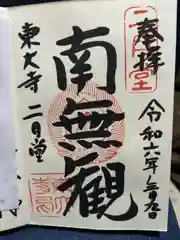 奉拝
令和六年三月九日
南無観
東大寺 二月堂